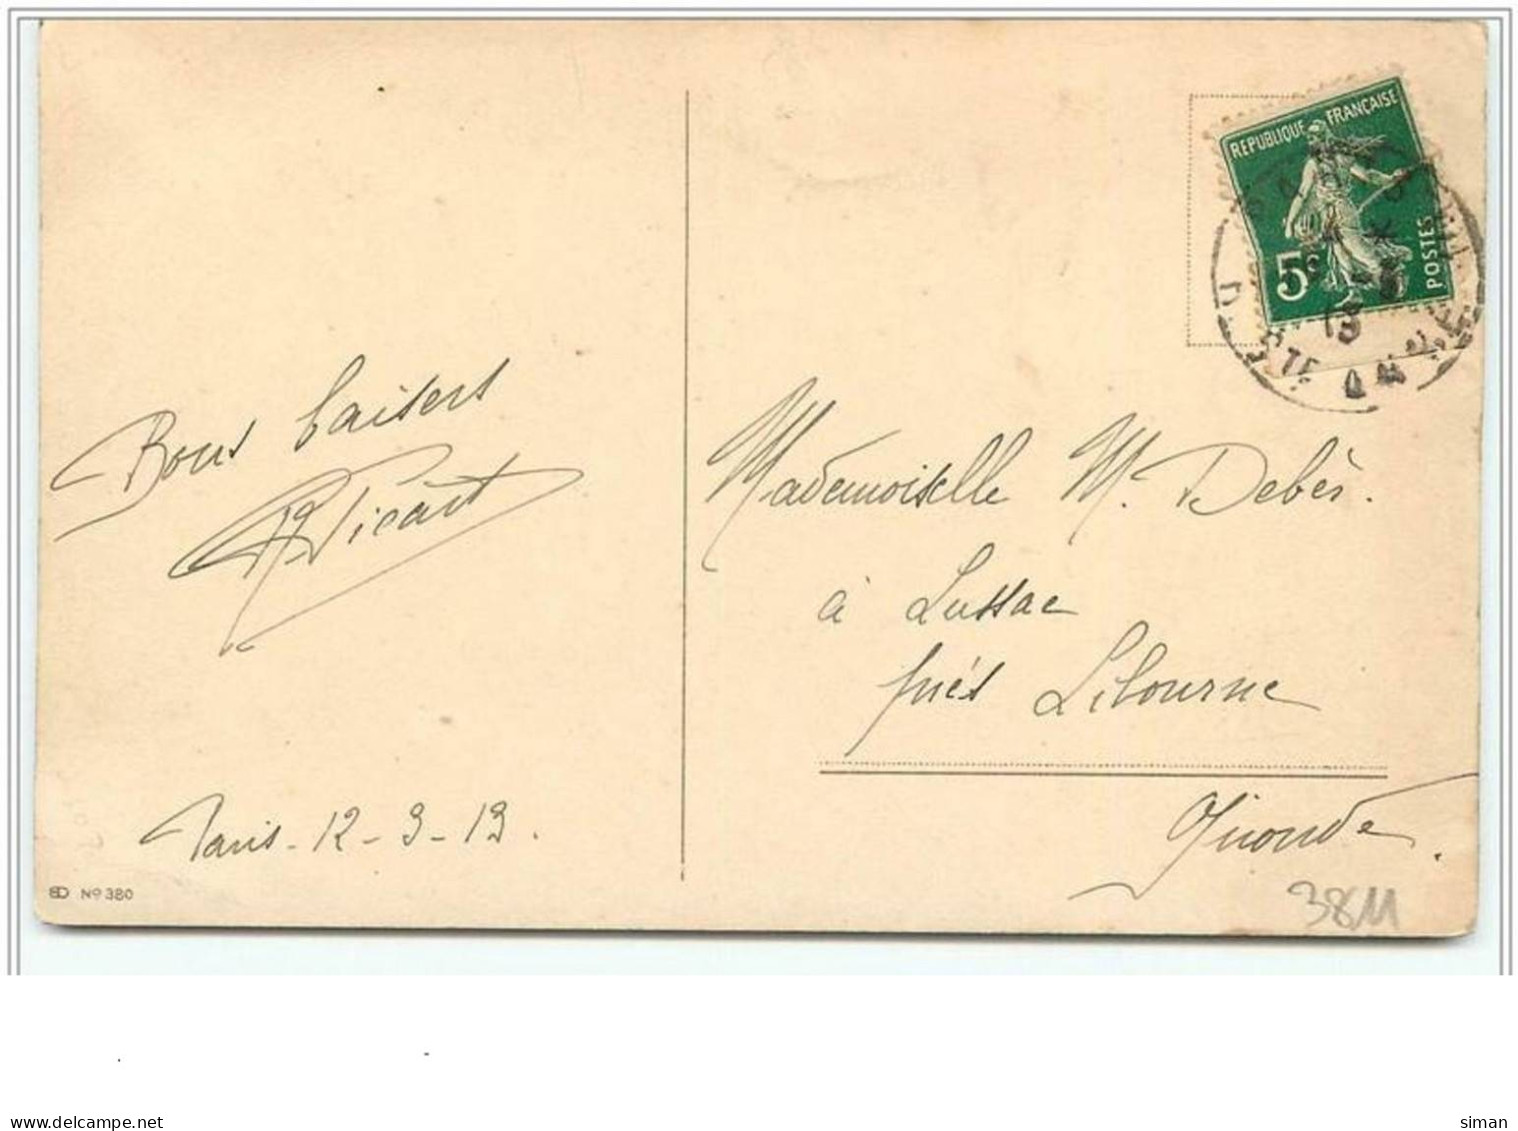 REPUBLIQUE FRANÇAISE
5c
POSTES
13
Bons baisers
Picart
Paris - 12 - 3 - 13.
Nº 380
Mademoiselle M. Debès.
à Lussac
près Libourne
Gironde.
38M
delcampe.net
siman